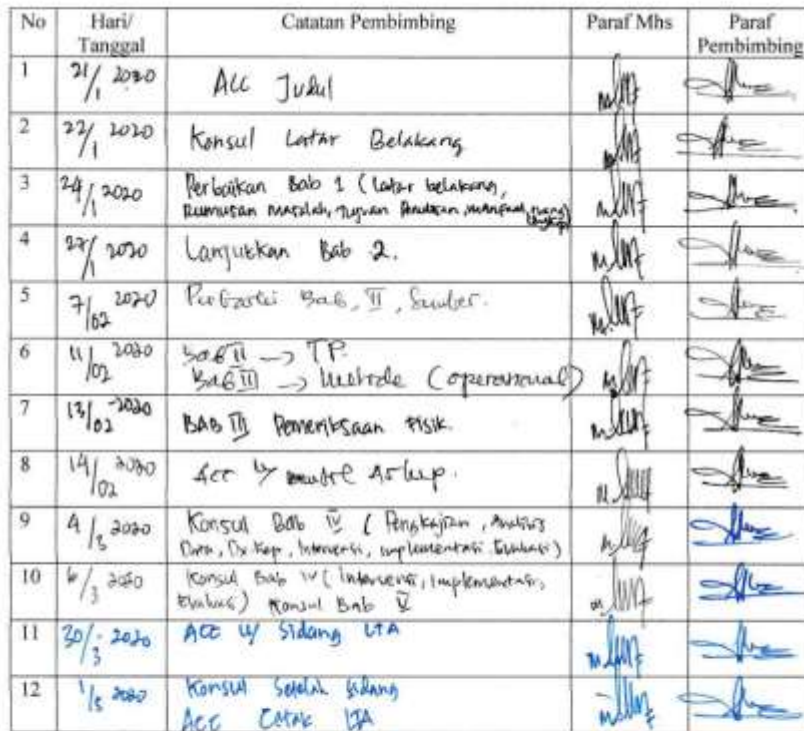 No Hari/ Tanggal Catatan Pembimbing Paraf Mhs Paraf Pembimbing
1 21/1 2020 ACC Judul
2 22/1 2020 Konsul Latar Belakang
3 24/1 2020 Perbaikan Bab 1 (Latar belakang,
Rumusan Masalah, Tujuan Penulisan, manfaat, ruang
4 27/1 2020 Lanjutkan Bab 2.
5 7/02 2020 Perbaiki Bab, II, Sumber.
6 11/02 2020 Bab II -> TP.
Bab III -> Metode (operasional)
7 13/02 2020 BAB III Pemeriksaan Fisik.
8 14/02 2020 Acc u/ Askep.
9 4/3 2020 Konsul Bab IV (Pengkajian, Analisis
Data, Dx.Kep, Intervensi, implementasi, Evaluasi)
10 6/3 2020 Konsul Bab IV (Intervensi, Implementasi,
Evaluasi) Konsul Bab V
11 30/3 2020 ACC u/ Sidang LTA
12 1/5 2020 Konsul Setelah Sidang
ACC Cetak LTA